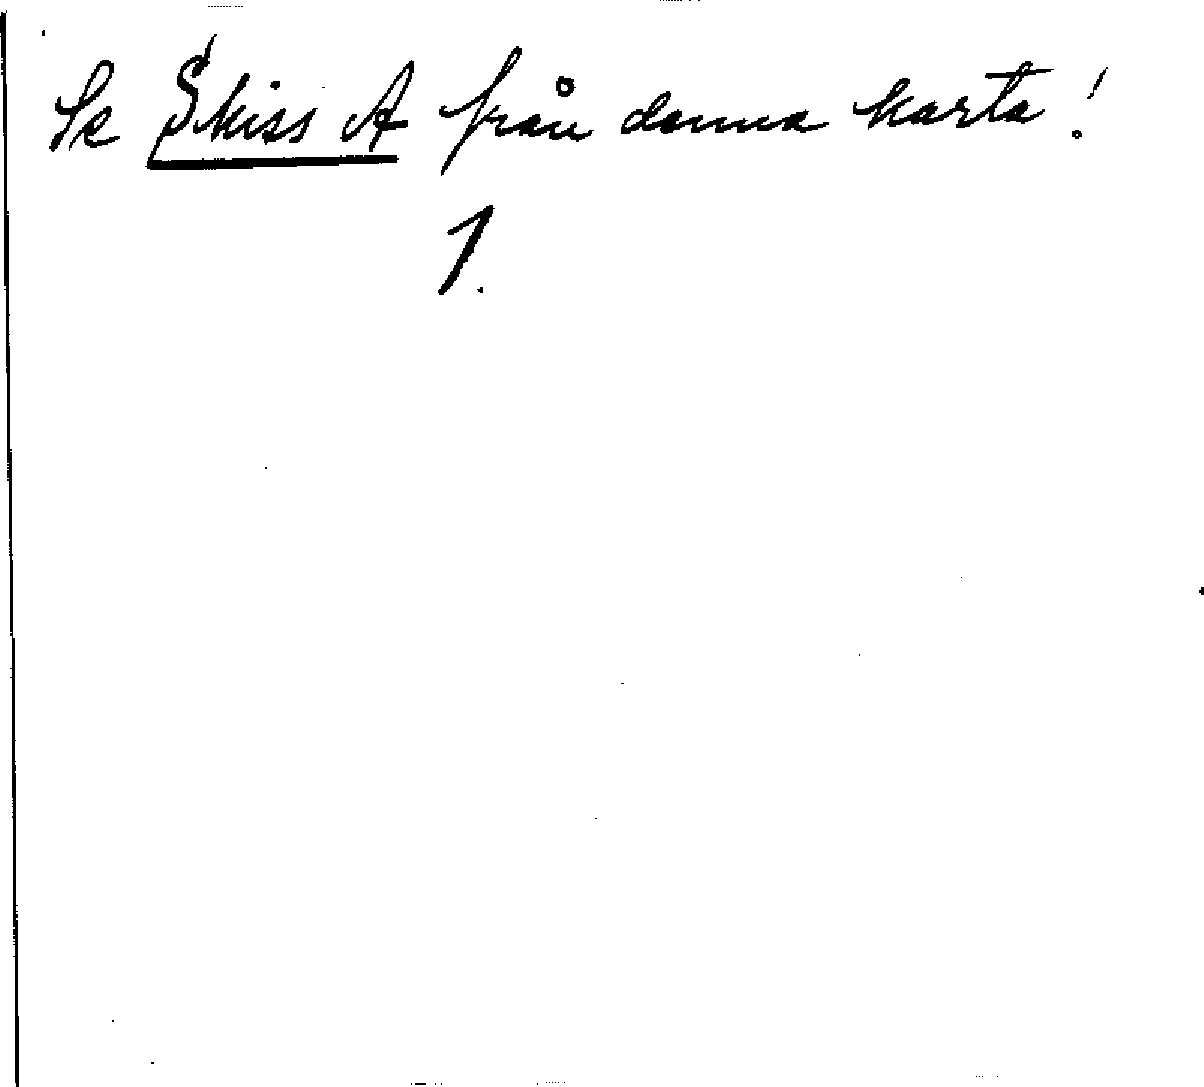 Se Skiss A från denna karta!
1.